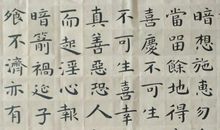 暗想施惠勿
當留餘地得
喜慶不可生
不可生喜幸
真善惡恐人
而起淫心報
暗箭禍延子
飧不濟亦有